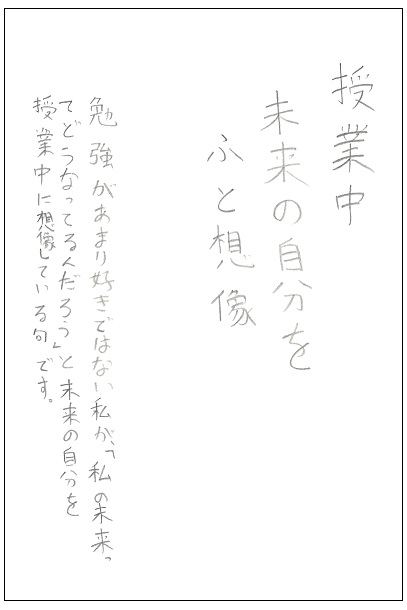 授業中
未来の自分を
ふと想像
勉強があまり好きではない私が、「私の未来っ
てどうなってるんだろう」と未来の自分を
授業中に想像している句です。